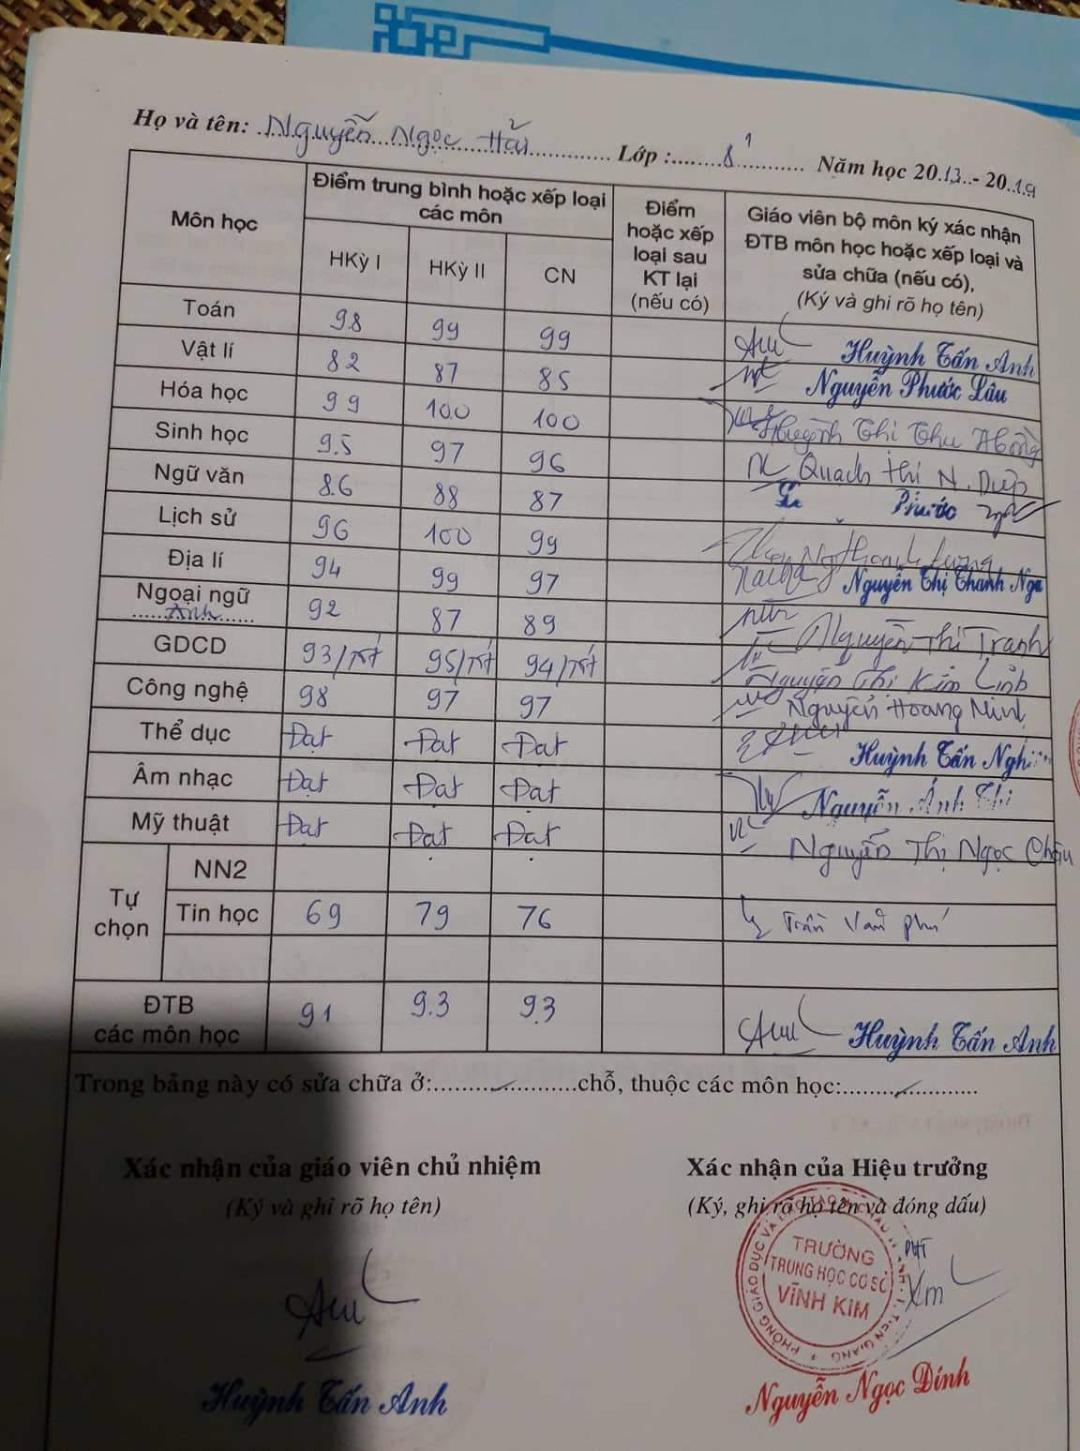 Họ và tên: Nguyễn Ngọc Hải Lớp : 8¹ Năm học 2013 - 20
Môn học
Điểm trung bình hoặc xếp loại các môn
HKỳ I HKỳ II CN
Điểm hoặc xếp loại sau KT lại (nếu có)
Giáo viên bộ môn ký xác nhận ĐTB môn học hoặc xếp loại và sửa chữa (nếu có),
(Ký và ghi rõ họ tên)
Toán 98 99 99 Huỳnh Tấn Anh
Vật lí 82 87 85 Nguyễn Phước Lâu
Hóa học 99 100 100 Huỳnh Thị Thu Hồng
Sinh học 9.5 97 96 Quách Thị N. Diệp
Ngữ văn 8.6 88 87 Phước
Lịch sử 96 100 99
Địa lí 94 99 97 Nguyễn Thị Thanh Nga
Ngoại ngữ Anh 92 87 89 Nguyễn Thị Tranh
GDCD 93/Tốt 95/Tốt 94/Tốt Nguyễn Thị Kim Linh
Công nghệ 98 97 97 Nguyễn Hoàng Minh
Thể dục Đạt Đạt Đạt Huỳnh Tấn
Âm nhạc Đạt Đạt Đạt Nguyễn Ánh Thi
Mỹ thuật Đạt Đạt Đạt Nguyễn Thị Ngọc Châu
Tự chọn
NN2
Tin học 69 79 76 Trần Văn Phú
ĐTB các môn học 91 9.3 9.3 Huỳnh Tấn Anh
Trong bảng này có sửa chữa ở: chỗ, thuộc các môn học:
Xác nhận của giáo viên chủ nhiệm
(Ký và ghi rõ họ tên)
Huỳnh Tấn Anh
Xác nhận của Hiệu trưởng
(Ký, ghi rõ họ tên và đóng dấu)
TRƯỜNG
TRUNG HỌC CƠ SỞ
VĨNH KIM
PHT
Nguyễn Ngọc Dính